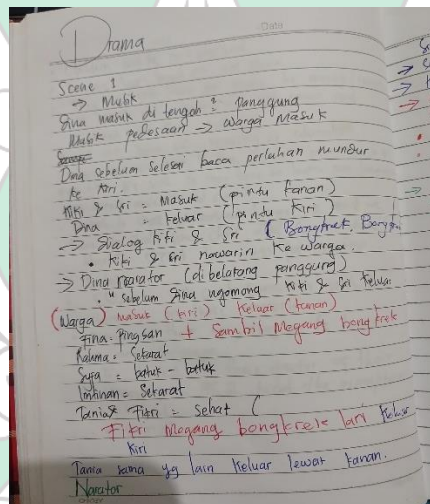 Drama
Scene 1
→ Musik
Dina masuk di tengah² panggung
Musik pedesaan → warga masuk
Dina sebelum selesai baca perlahan mundur
ke kiri.
Kiki & Sri = Masuk (pintu kanan)
Dina = keluar (pintu kiri)
→ Dialog Kiki & Sri (Bongkrek, Bongkrek
• Kiki & Sri nawarin ke warga.
→ Dina narator (di belakang panggung)
• " sebelum Dina ngomong Kiki & Sri keluar
(Warga) masuk (kiri) keluar (kanan)
Fina = Pingsan + Sambil Megang bongkrek
Rahma = Sekarat
= batuk - batuk
= Sekarat
Tania & Fitri = Sehat (
Fitri Megang bongkrek lari keluar
kiri
Tania sama yg lain keluar lewat kanan.
Narator